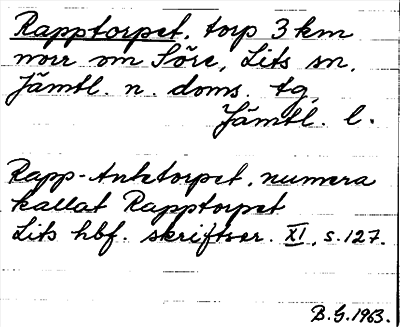 Rapptorpet, torp 3 km
norr om Söre, Lits sn,
Jämtl. n. doms. tg,
Jämtl. l.
Rapp-Anktorpet, numera
kallat Rapptorpet
Lits hbf. skriftser. XI, s. 127.
B.G. 1963.